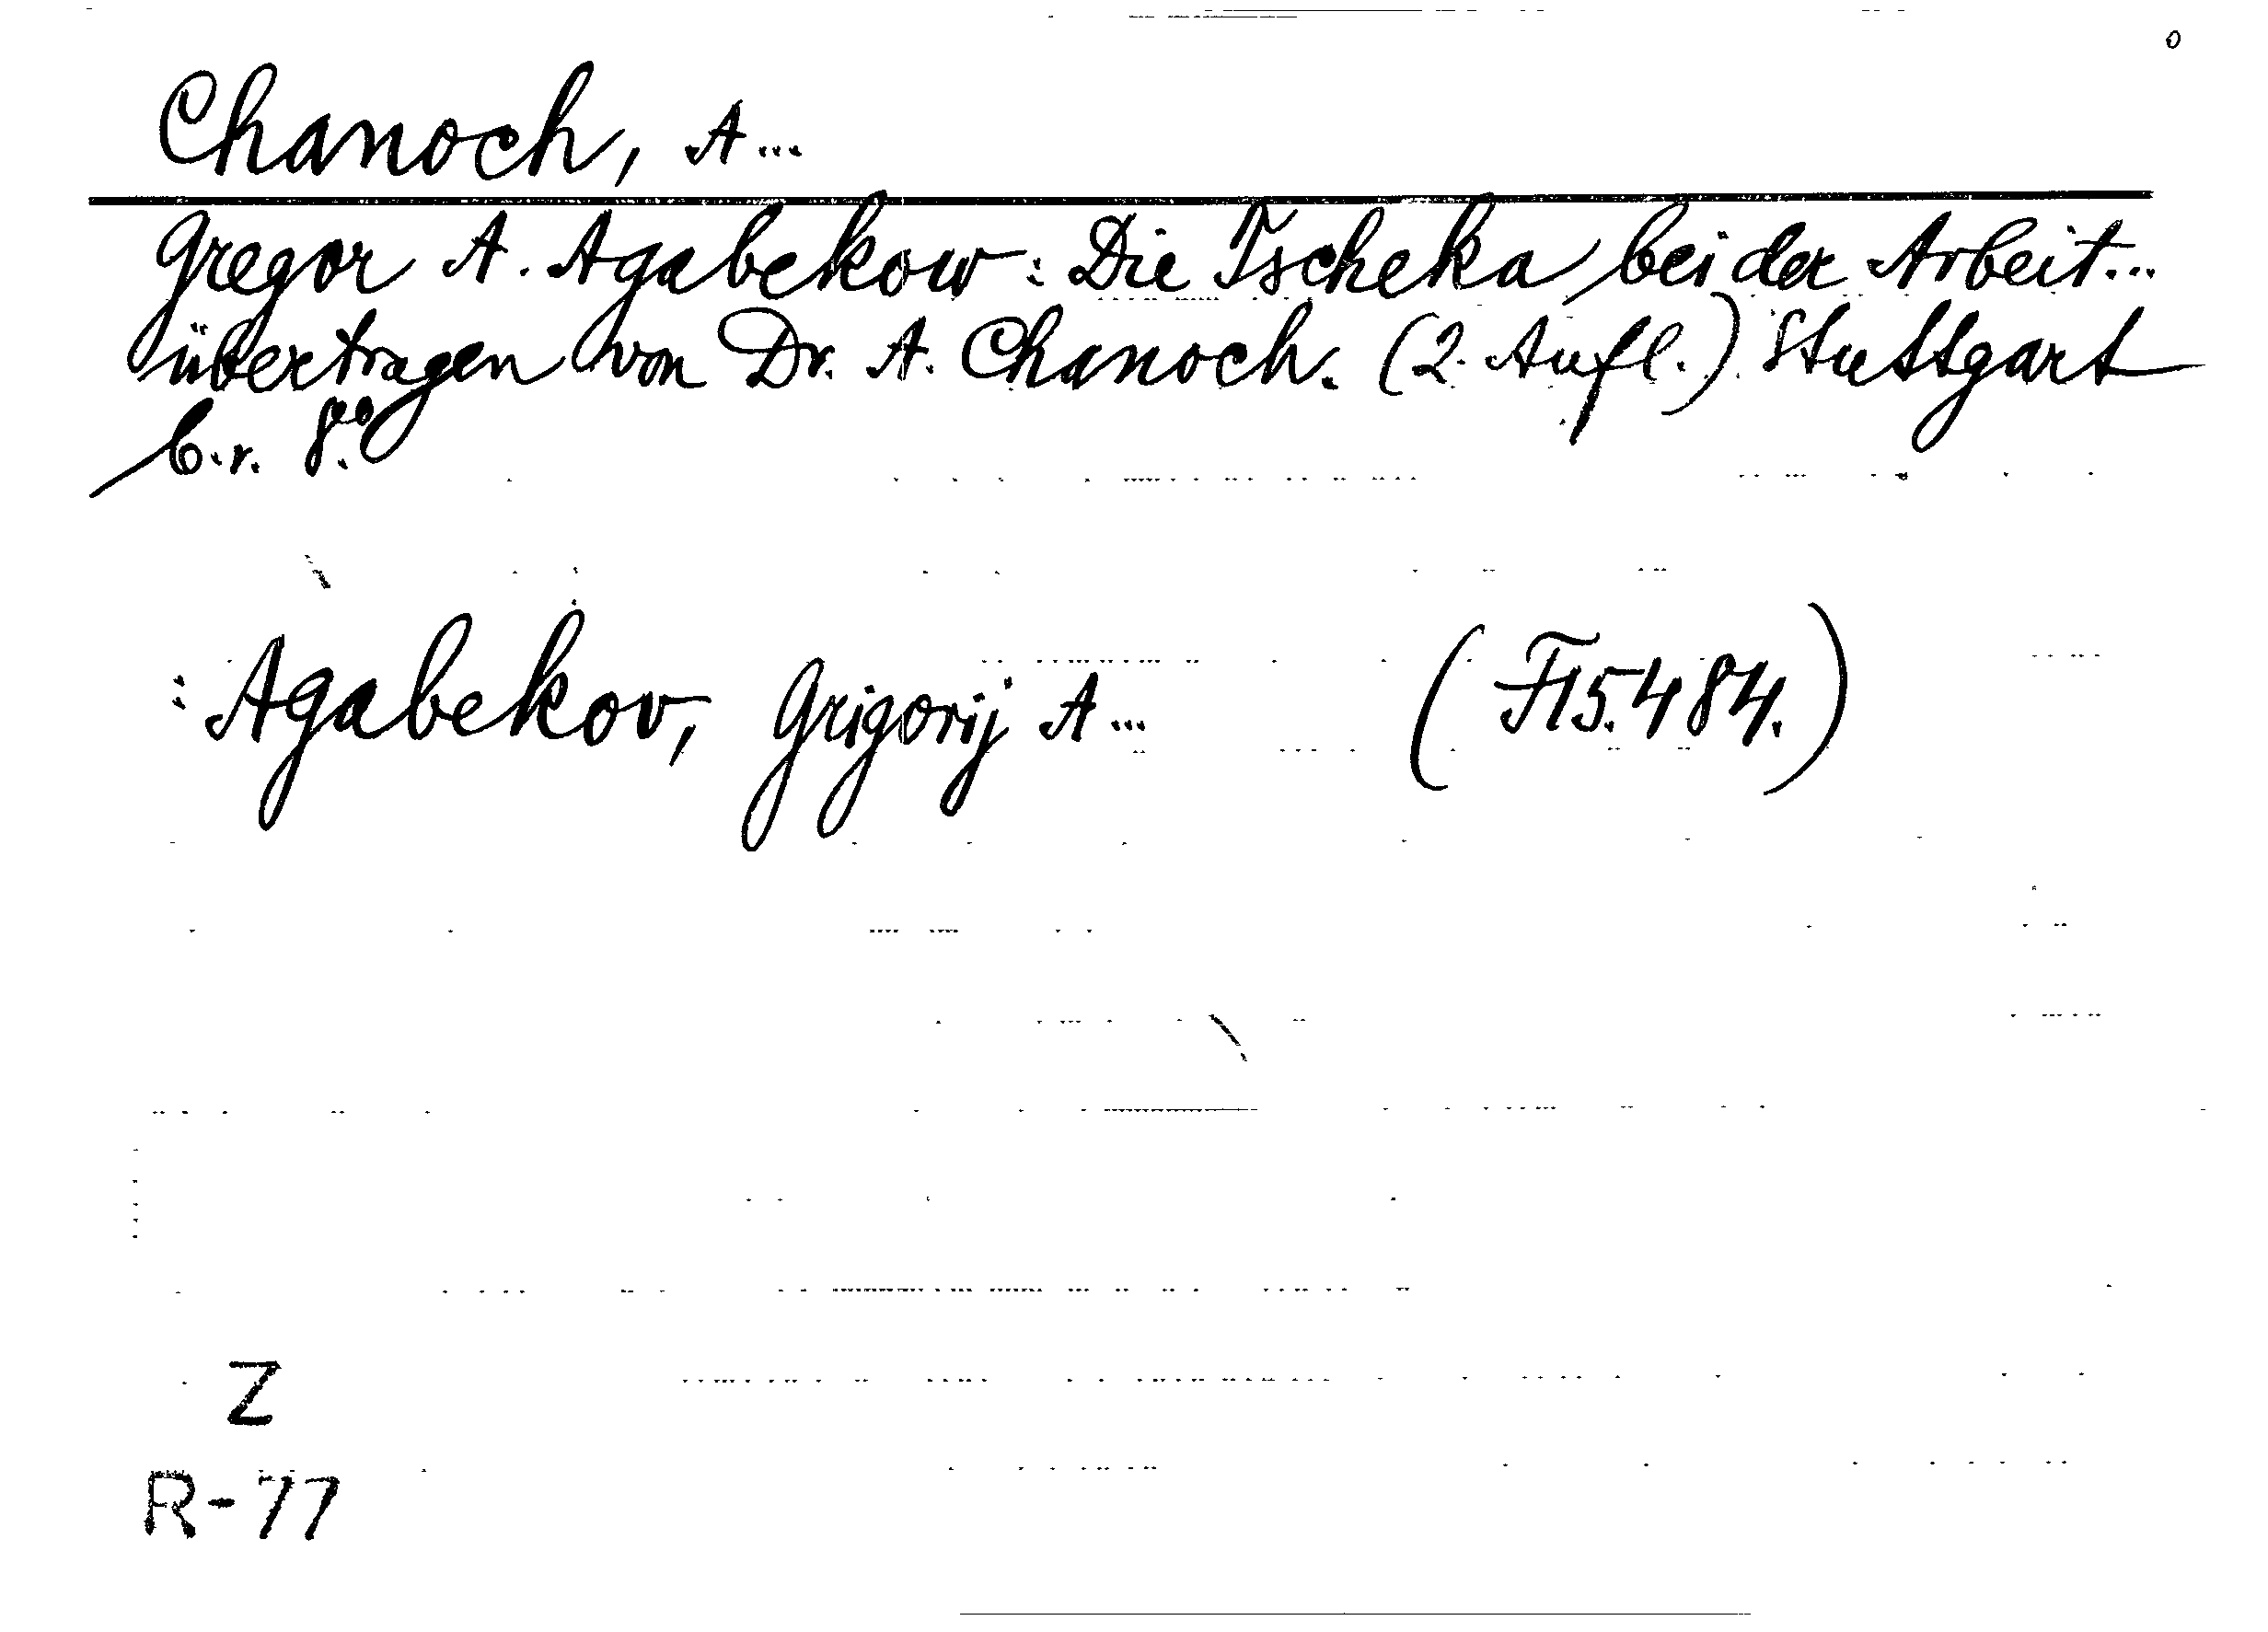 Chanoch, A...
Gregor A. Agabekow: Die Tscheka bei der Arbeit...
übertragen von Dr. A. Chanoch. (2. Aufl.) Stuttgart
b.r. 8.°
: Agabekov, Grigorij A... (F15.484.)
Z
R-77